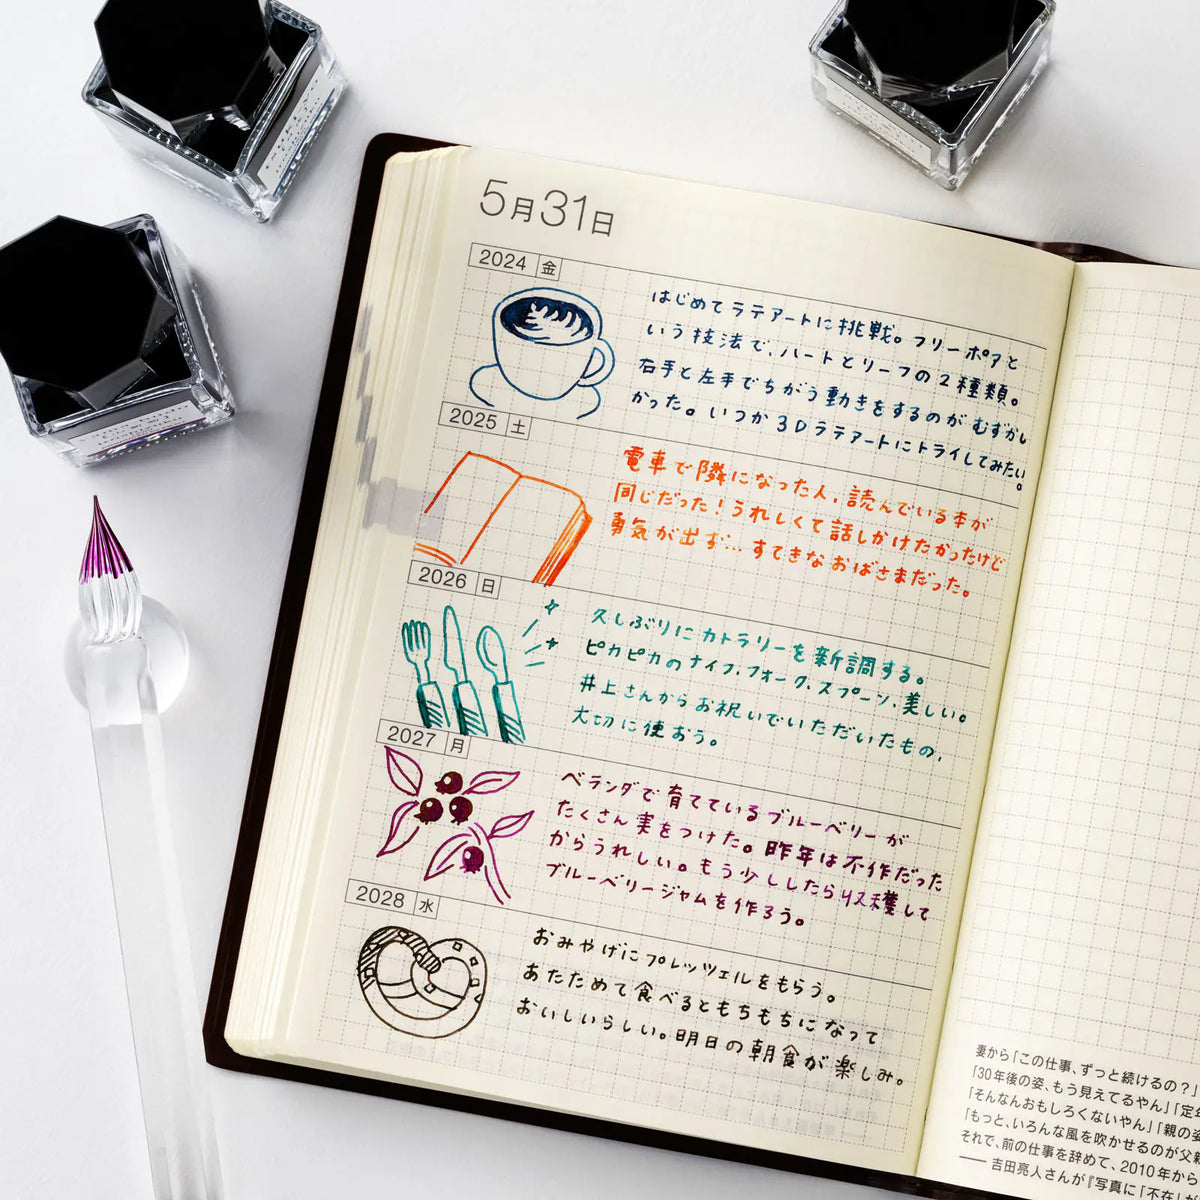 5月31日
2024 金
はじめてラテアートに挑戦。フリーポアと
いう技法で、ハートとリーフの2種類。
右手と左手でちがう動きをするのがむずかし
かった。いつか3Dラテアートにトライしてみたい。
2025 土
電車で隣になった人、読んでいる本が
同じだった！うれしくて話しかけたかったけど
勇気が出ず…すてきなおばさまだった。
2026 日
久しぶりにカトラリーを新調する。
ピカピカのナイフ、フォーク、スプーン、美しい。
井上さんからお祝いでいただいたもの、
大切に使おう。
2027 月
ベランダで育てているブルーベリーが
たくさん実をつけた。昨年は不作だった
からうれしい。もう少ししたら収穫して
ブルーベリージャムを作ろう。
2028 水
おみやげにプレッツェルをもらう。
あたためて食べるともちもちになって
おいしいらしい。明日の朝食が楽しみ。
妻から「この仕事、ずっと続けるの？」
「30年後の姿、もう見えてるやん」「定年
「そんなんおもしろくないやん」「親の姿
「もっと、いろんな風を吹かせるのが父親
それで、前の仕事を辞めて、2010年から
── 吉田亮人さんが『写真に「不在」